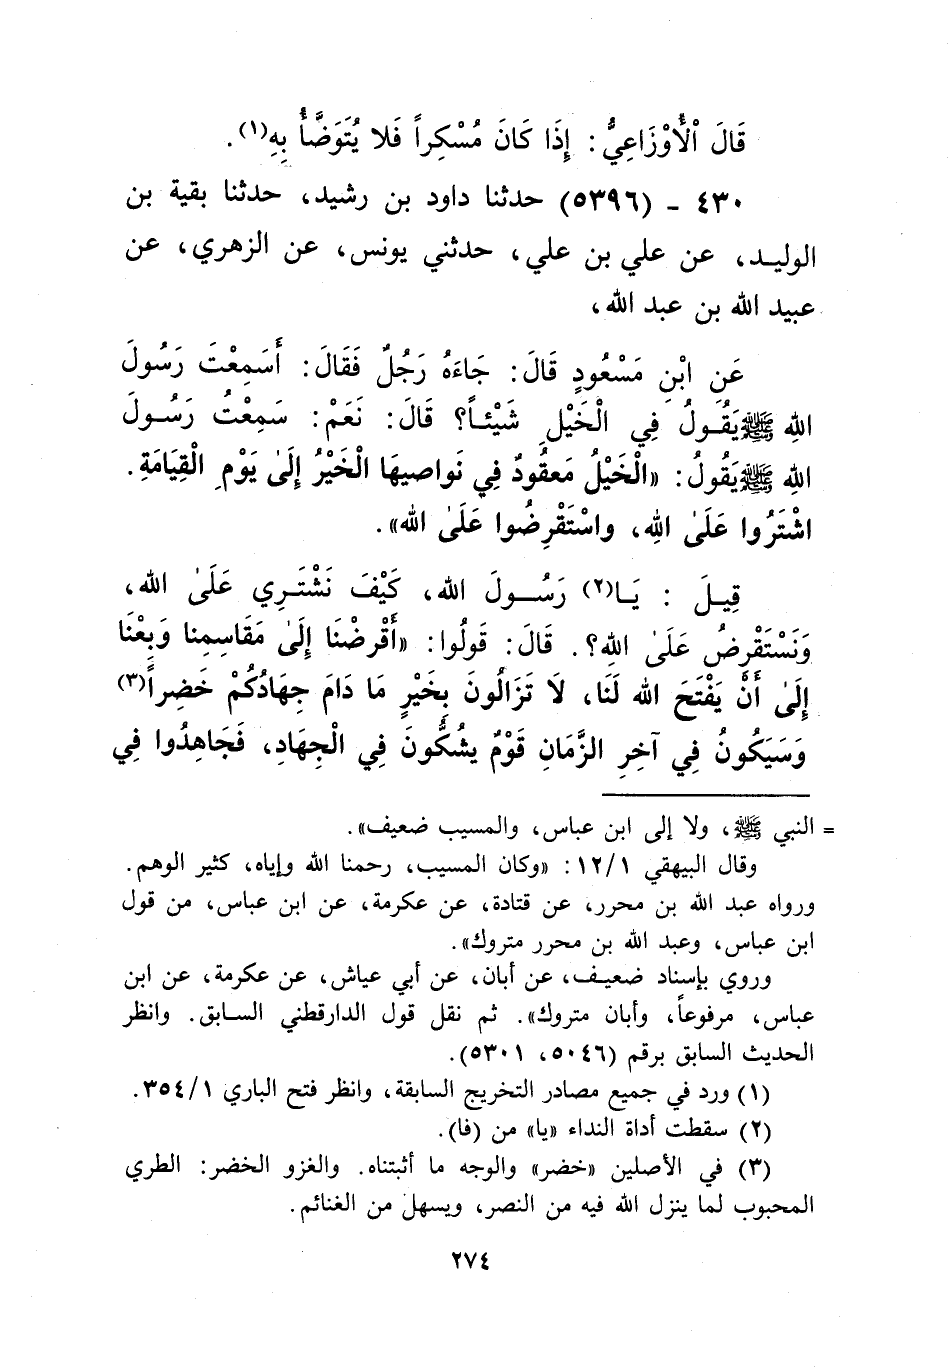 قَالَ ٱلْأَوْزَاعِيُّ: إِذَا كَانَ مُسْكِراً فَلا يُتَوَضَّأُ بِهِ(١).
٤٣٠ - (٥٣٩٦) حدثنا داود بن رشيد، حدثنا بقية بن
الوليد، عن علي بن علي، حدثني يونس، عن الزهري، عن
عبيد الله بن عبد الله،
عَنِ ابْنِ مَسْعُودٍ قَالَ: جَاءَهُ رَجُلٌ فَقَالَ: أَسَمِعْتَ رَسُولَ
اللهِ ﷺ يَقُولُ فِي الْخَيْلِ شَيْئاً؟ قَالَ: نَعَمْ: سَمِعْتُ رَسُولَ
اللهِ ﷺ يَقُولُ: «الْخَيْلُ مَعقُودٌ فِي نَواصيهَا الْخَيْرُ إِلَىٰ يَوْمِ الْقِيَامَةِ.
اشْتَرُوا عَلَىٰ اللهِ، واسْتَقْرِضُوا عَلَىٰ الله».
قِيلَ : يَا(٢) رَسُولَ الله، كَيْفَ نَشْتَرِي عَلَىٰ الله،
وَنَسْتَقْرِضُ عَلَىٰ اللهِ؟. قَالَ: قُولُوا: «أَقْرِضْنَا إِلَىٰ مَقَاسِمِنا وَبِعْنَا
إِلَىٰ أَنْ يَفْتَحَ الله لَنَا، لَا تَزَالُونَ بِخَيْرٍ مَا دَامَ جِهَادُكُمْ خَضِراً(٣)
وَسَيَكُونُ فِي آخِرِ الزَّمَانِ قَوْمٌ يشُكُّونَ فِي الْجِهَادِ، فَجَاهِدُوا فِي
= النبي ﷺ، ولا إلى ابن عباس، والمسيب ضعيف».
وقال البيهقي ١٢/١: «وكان المسيب، رحمنا الله وإياه، كثير الوهم.
ورواه عبد الله بن محرر، عن قتادة، عن عكرمة، عن ابن عباس، من قول
ابن عباس، وعبد الله بن محرر متروك».
وروي بإسناد ضعيف، عن أبان، عن أبي عياش، عن عكرمة، عن ابن
عباس، مرفوعاً، وأبان متروك». ثم نقل قول الدارقطني السابق. وانظر
الحديث السابق برقم (٥٠٤٦، ٥٣٠١).
(١) ورد في جميع مصادر التخريج السابقة، وانظر فتح الباري ٣٥٤/١.
(٢) سقطت أداة النداء «يا» من (فا).
(٣) في الأصلين «خضر» والوجه ما أثبتناه. والغزو الخضر: الطري
المحبوب لما ينزل الله فيه من النصر، ويسهل من الغنائم.
٢٧٤